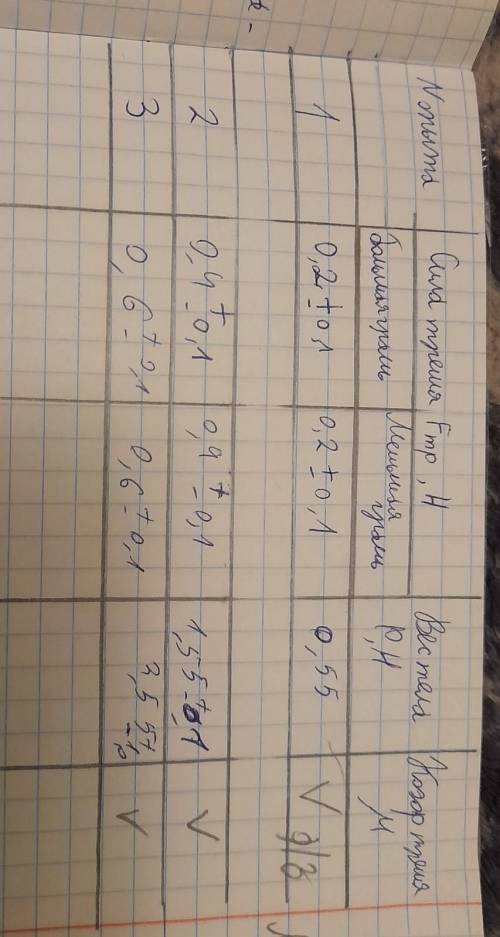 №опыта
Сила трения Fтр, Н
Вес тела
P, Н
Коэф трения
μ
большая грань
Меньшая
грань
1
0,2 ± 0,1
0,2 ± 0,1
0,55
V
д/з
2
0,4 ± 0,1
0,4 ± 0,1
1,55 ± 0,1
V
3
0,6 ± 0,1
0,6 ± 0,1
V